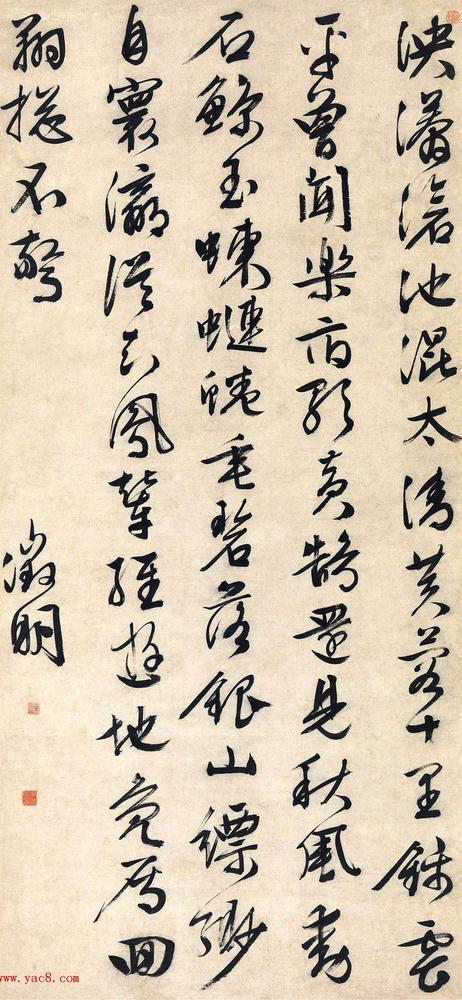 泱漭滄池混太清芙蓉十里錦雲
平曾聞樂府歌黃鵠還見秋風動
石鯨玉蝀䗴蜷垂碧落銀山縹緲
自寰瀛從知鳳輦經遊地鳧雁回
翔總不驚
徵明
www.yac8.com